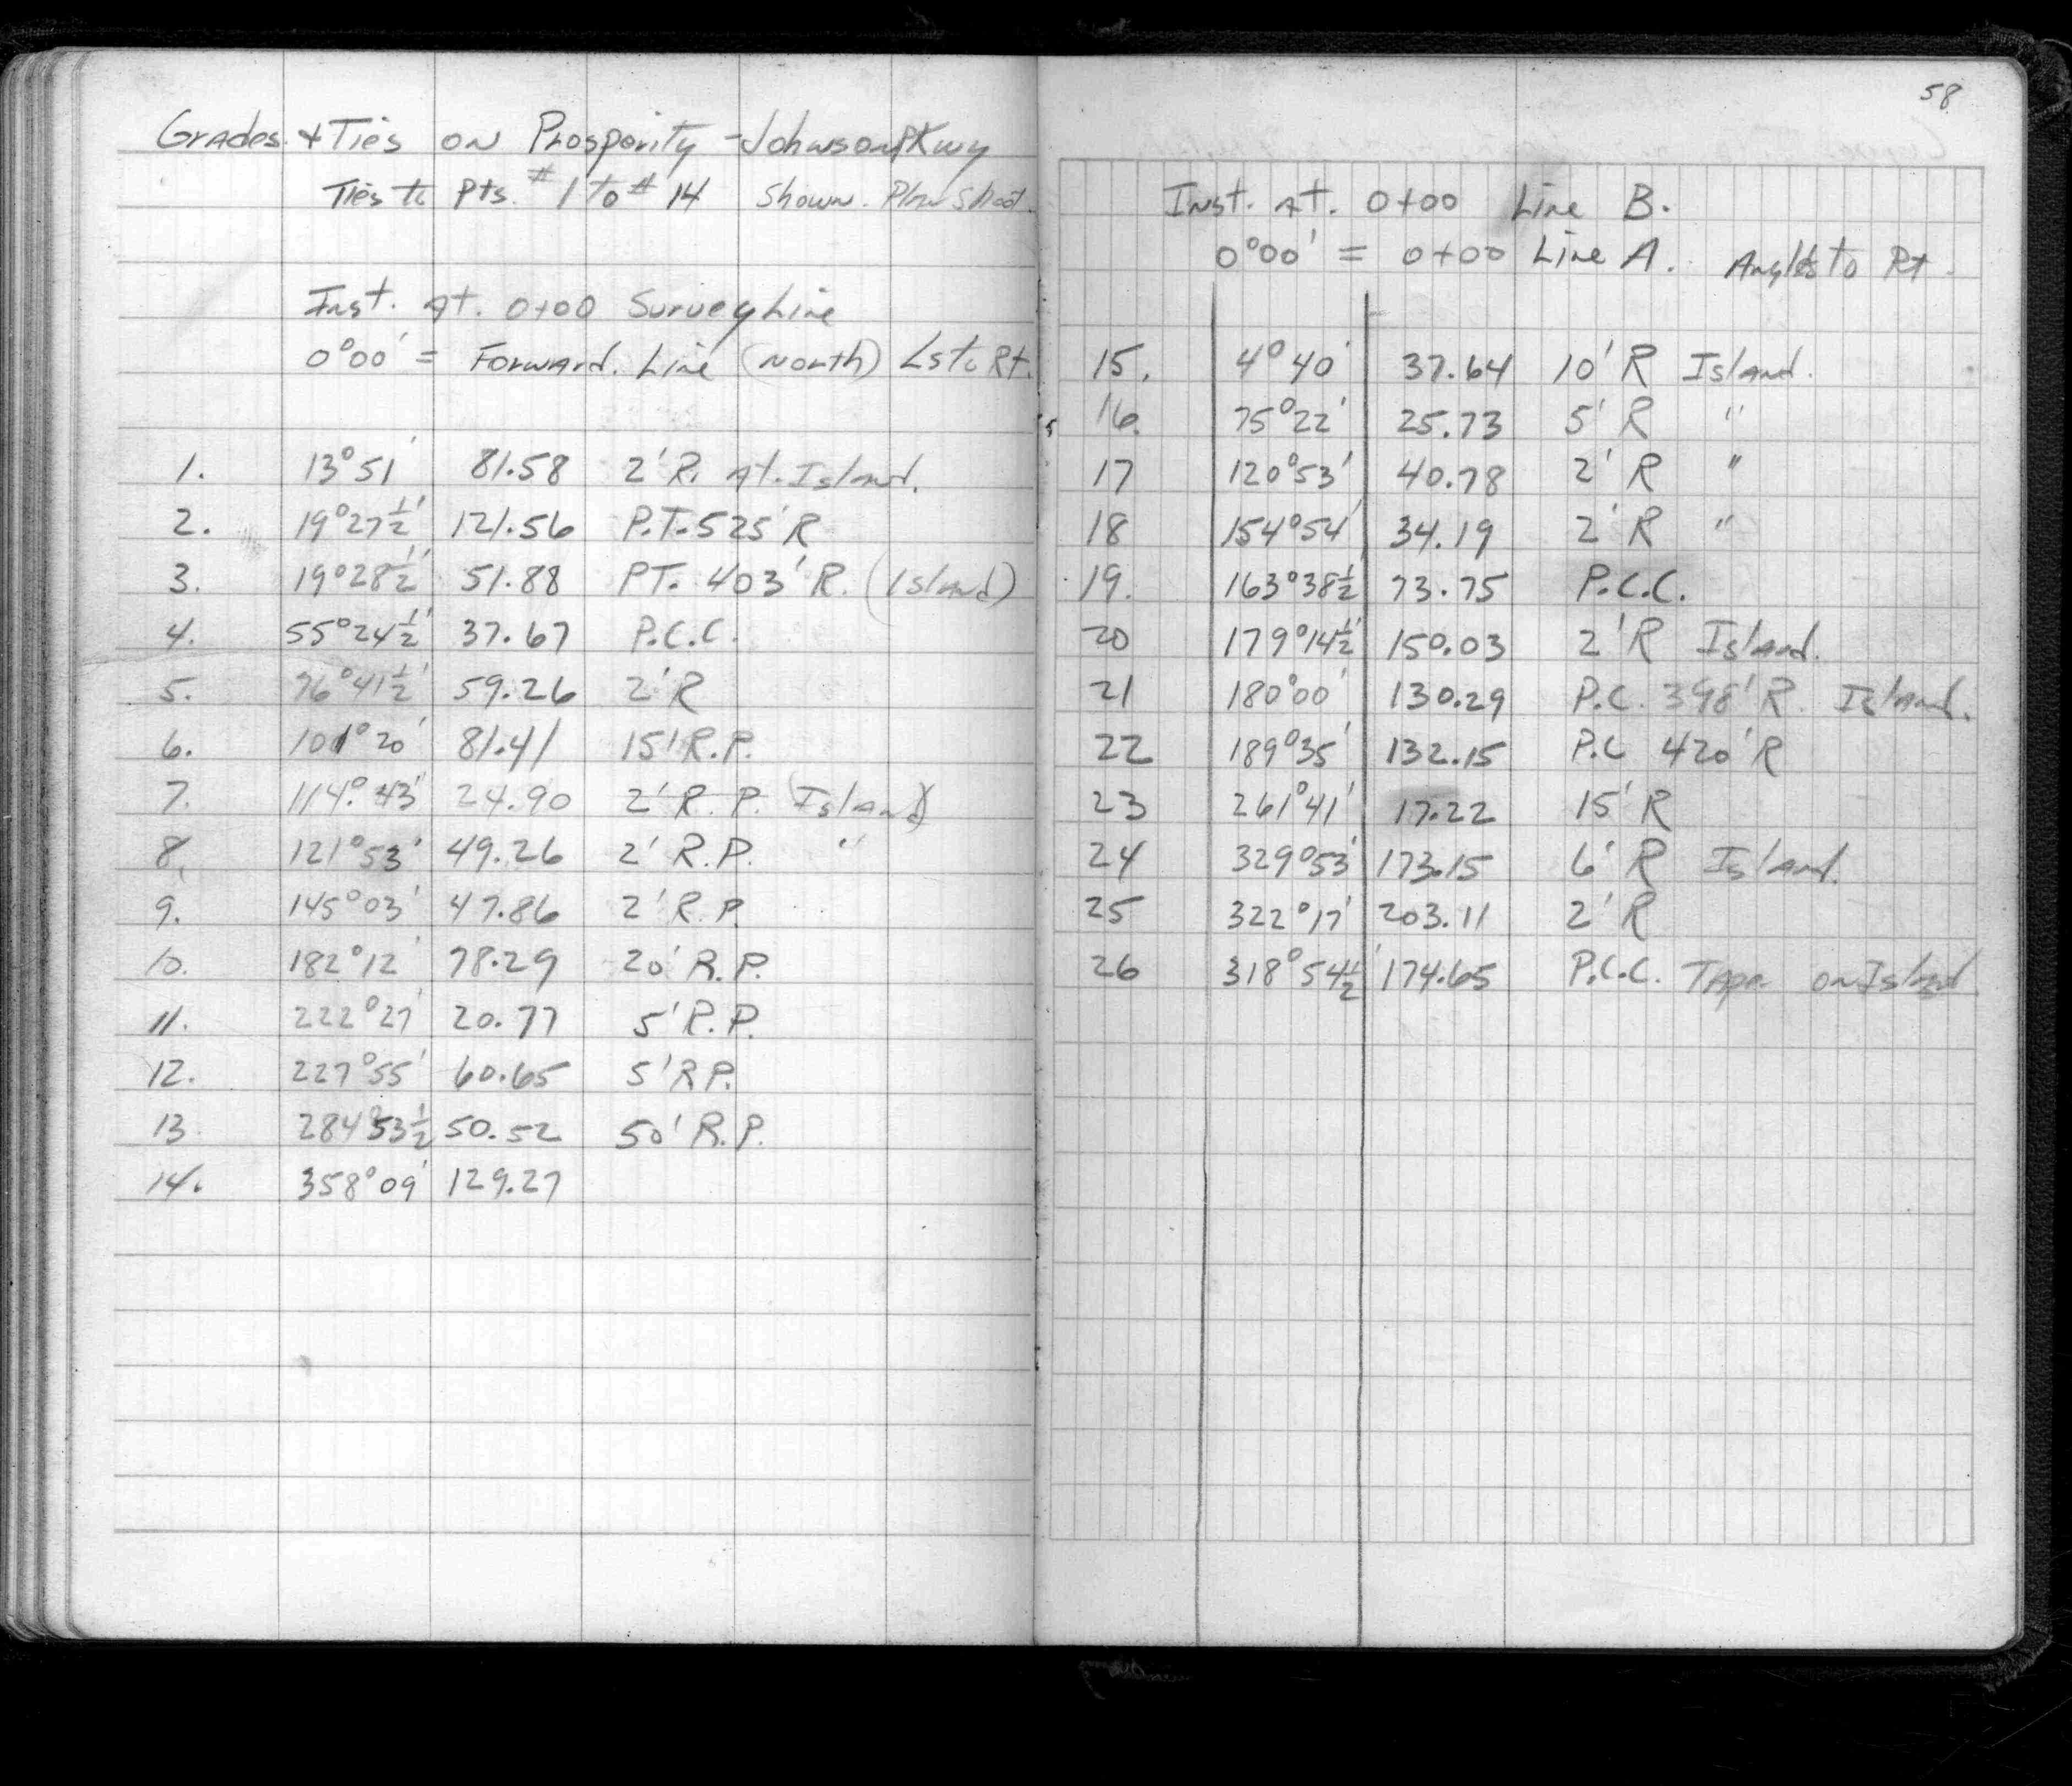 Grades + Ties on Prosperity - Johnson Pkwy
Ties to Pts. #1 to #14 Shown. Plan Sheet.
Inst. At. 0+00 Survey Line
0°00' = Forward. Line (North) Ls to Rt.
1. 13°51' 81.58 2' R. At. Island.
2. 19°27½' 121.56 P.T. 525' R
3. 19°28½' 51.88 PT. 403' R. (Island)
4. 55°24½' 37.67 P.C.C.
5. 76°41½' 59.26 2' R
6. 101°20' 81.41 15' R.P.
7. 114°43' 24.90 2' R.P. (Island)
8. 121°53' 49.26 2' R.P. "
9. 145°03' 47.86 2' R.P.
10. 182°12' 78.29 20' R.P.
11. 222°27' 20.77 5' R.P.
12. 227°55' 60.65 5' R.P.
13 284°53½ 50.52 50' R.P.
14. 358°09' 129.27
58
Inst. At. 0+00 Line B.
0°00' = 0+00 Line A. Angles to Rt.
15. 4°40' 37.64 10' R Island.
16. 75°22' 25.73 5' R "
17 120°53' 40.78 2' R "
18 154°54' 34.19 2' R "
19. 163°38½' 73.75 P.C.C.
20 179°14½' 150.03 2' R Island.
21 180°00' 130.29 P.C. 398' R. Island.
22 189°35' 132.15 P.C 420' R
23 261°41' 17.22 15' R
24 329°53' 173.15 6' R Island.
25 322°17' 203.11 2' R
26 318°54½' 174.65 P.C.C. Tape on Island